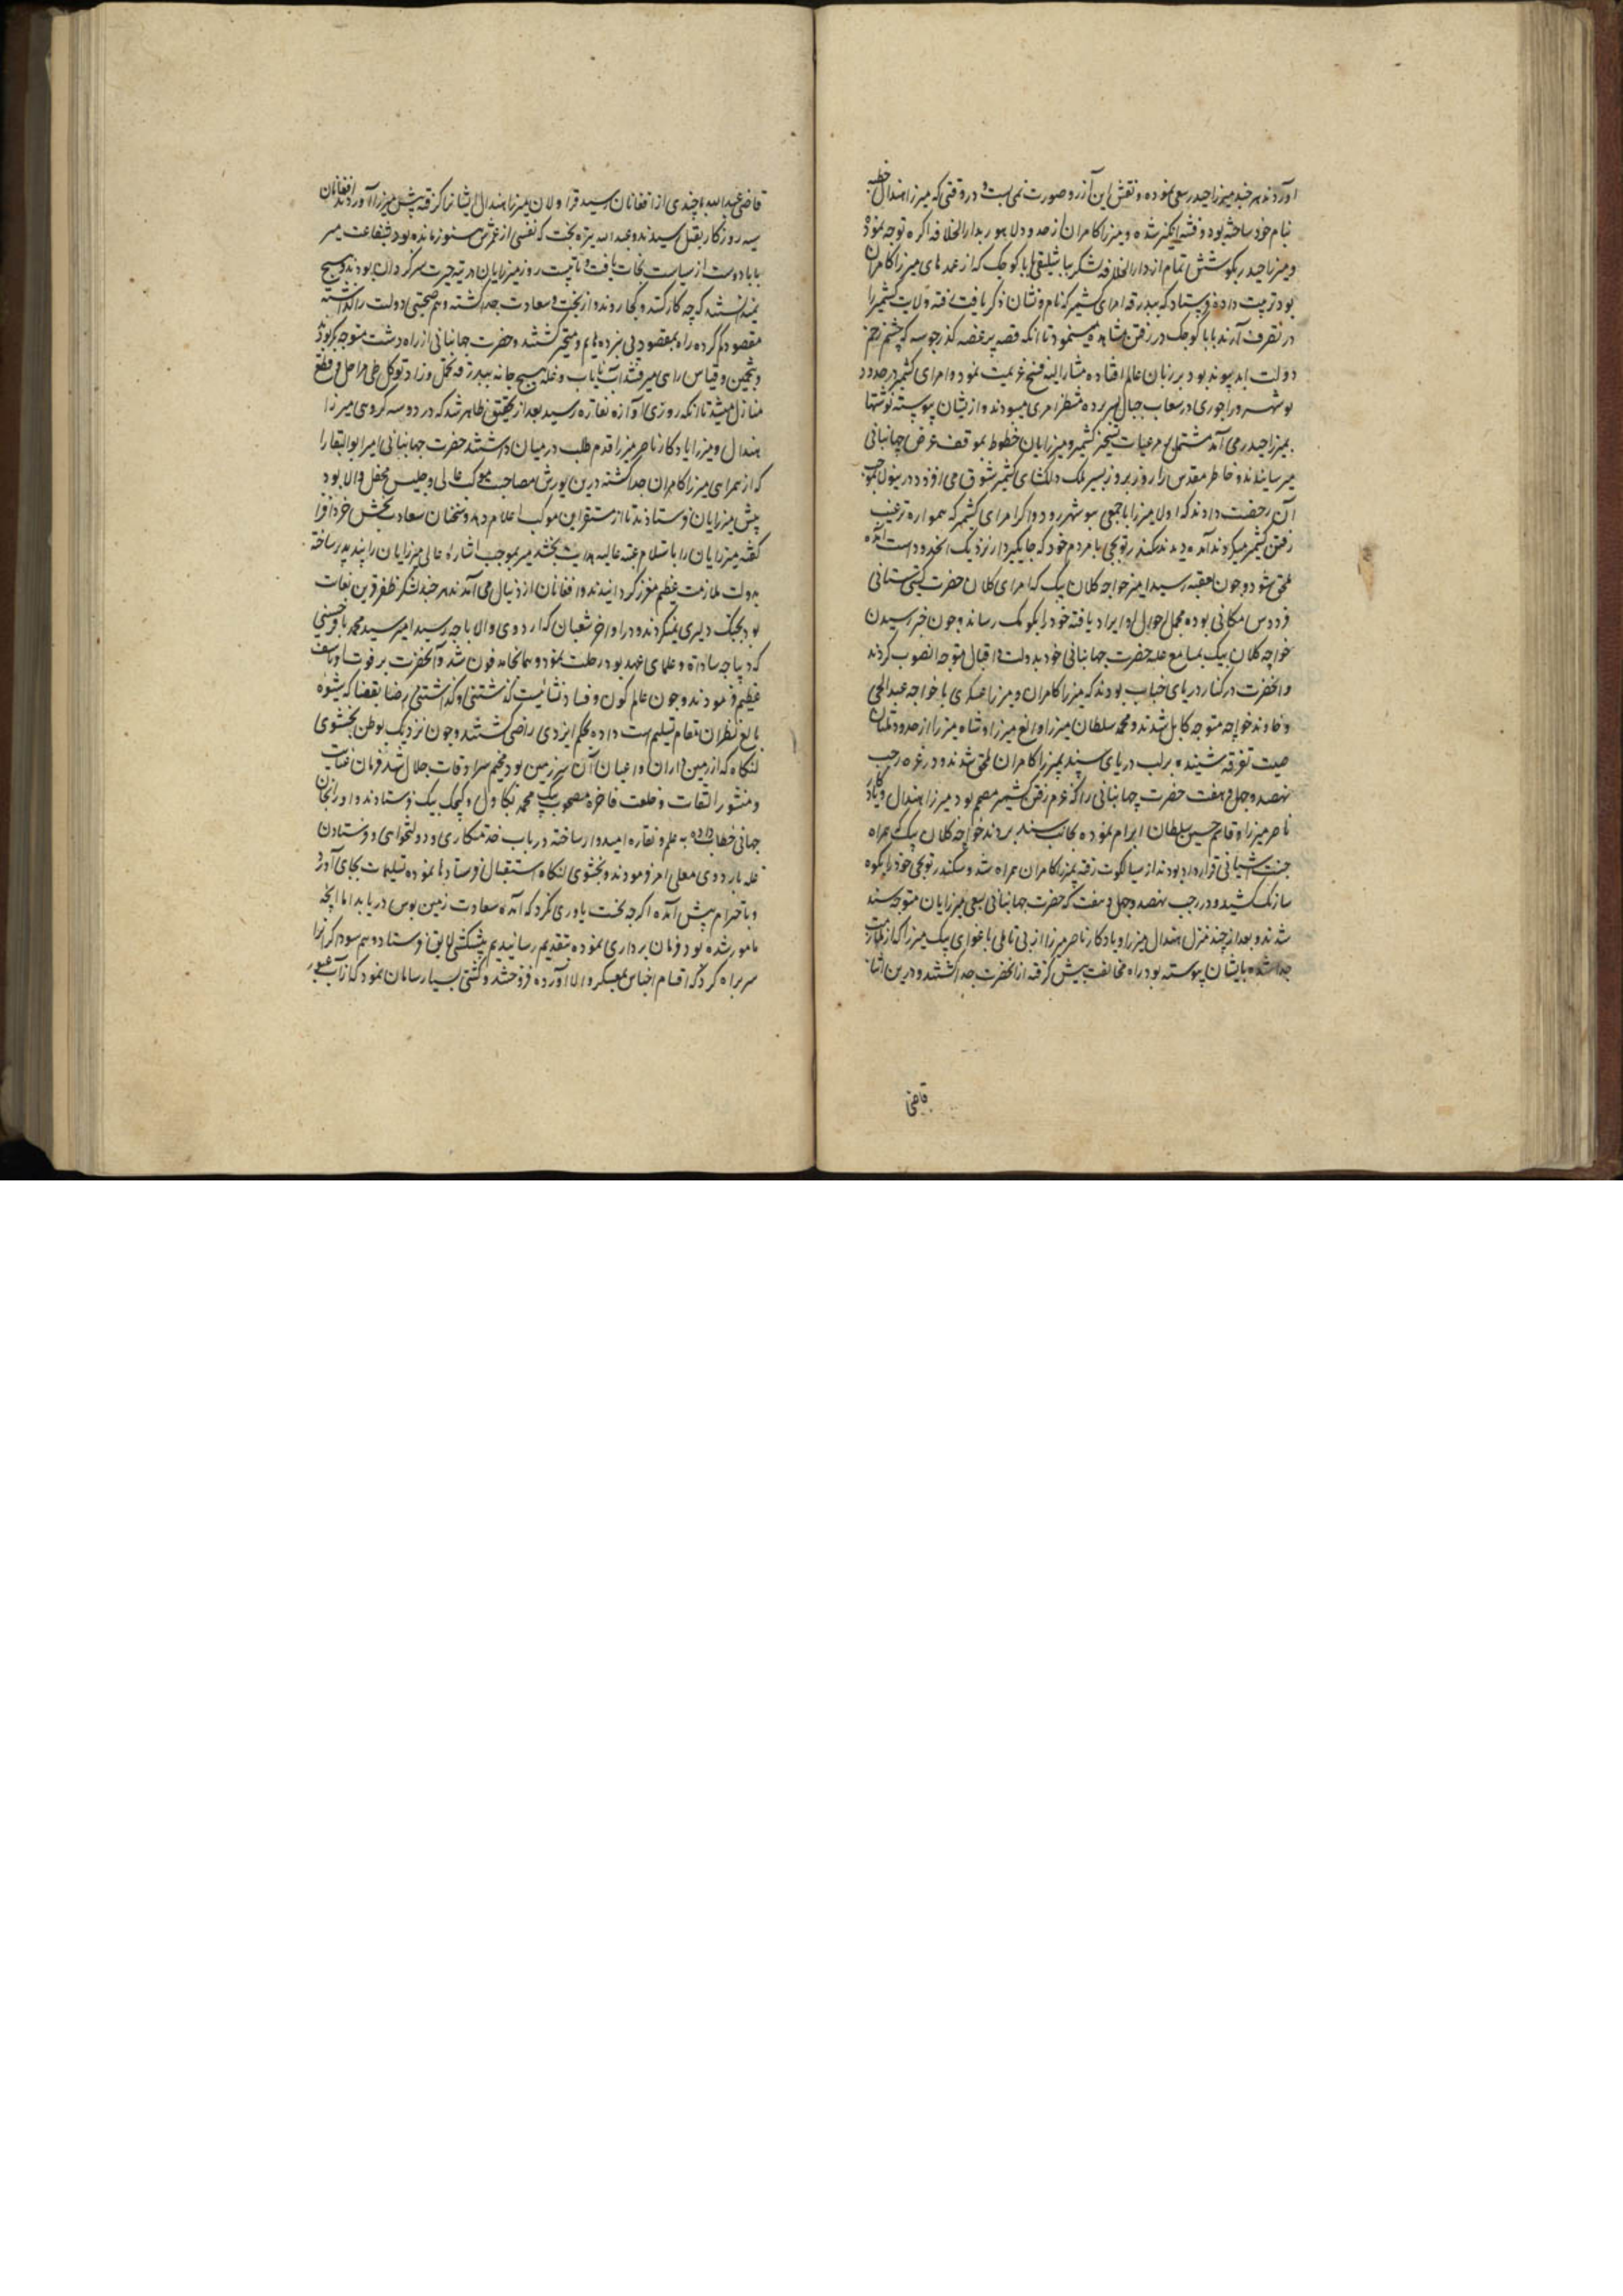 آوردند هر چند میرزا حیدر سعی نموده و نقش این آرزو صورت نمی بست و در وقتی که میرزا هندال خطبه
بنام خود ساخته بود و فتنه انگیز شده و میرزا کامران از حدود لاهور بدارالخلافه اکره توجه نمود
و میرزا حیدر بکوشش تمام از دارالخلافه لشکر با بابا کوجک که از عمدهای میرزا کامران
بود ترتیب داده فرستاد که ببدرقه امرای کشمیر که نام و نشان ذکر یافت رفته ولایت کشمیر را
در تصرف آرند بابا کوجک در رفتن مینمود تا انکه قصه پر غصه کذر جوسه که چشم زخم
دولت ابد پیوند بود بر زبان عالم افتاده مشار الیه فسخ عزیمت نمود و امرای کشمیر در حدود
نوشهر و راجوری در شعاب جبال بسر برده منتظر امری میبودند و از یشان پیوسته نوشتها
بمیرزا حیدر می آمد مشتمل بر مرغبات تسخیر کشمیر و میرزایان خطوط بموقف عرض جهانبانی
میرسانیدند و خاطر مقدس را روز بروز بسیر ملک دلکشای کشمیر شوق می افزود در ینولا بموجب
آن رخصت دادند که اولا میرزا با جمعی بنوشهر رود و اکر امرای کشمیر که همواره ترغیب
رفتن کشمیر میکردند آمده دیدند سکندر توپچی با مردم خود که جاکیردار نزدیک انحدود است آمده
ملحق شود و چون بعقبه رسید امیر خواجه کلان بیک که امرای کلان حضرت کیتی ستانی
فردوس مکانی بوده مجمل احوال او ایراد یافته خود را بکومک رساند و چون خبر رسیدن
خواجه کلان بیک بمسامع علیه حضرت جهانبانی خود بدولت و اقبال متوجه انصوب کردند
و انحضرت در کنار دریای چناب بودند که میرزا کامران و میرزا عسکری با خواجه عبدالحی
و خاوند خواجه متوجه کابل شدند و محمد سلطان میرزا و الغ میرزا و شاه میرزا از حدود ملتان
صیت تفرقه شنیده بر لب دریای سند بمیرزا کامران ملحق شدند و در غره رجب
نهصد و چهل و هفت حضرت جهانبانی را که عزم رفتن کشمیر مصمم بود میرزا هندال و یادکار
ناصر میرزا و قاسم حسین سلطان ابرام نموده بجانب سند بردند خواجه کلان بیک که همراه
جنت اشیانی قرار داده بودند از سیالکوت رفته بمیرزا کامران همراه شد و سکندر توپچی خود را بکوه
سارنک کشید و در رجب نهصد و چهل و هفت که حضرت جهانبانی بسعی میرزایان متوجه سند
شدند و بعد از چند منزل هندال میرزا و یادکار ناصر میرزا از بی تاملی باغوای بیک میرزا که از ملازمت
جدا شده بایشان پیوسته بود راه مخالفت پیش کرفته از انحضرت جدا کشتند و درین اثنا
قاضی
قاضی عبدالله با چندی از افغانان رسید قراولان میرزا هندال ایشانرا کرفته پیش میرزا آوردند افغانان
سیه روزکار بقتل رسیدند و عبدالله تیره بخت که نفسی از عمرش هنوز مانده بود بشفاعت میر
بابا دوست از سیاست نجات یافت و تا بیست روز میرزایان در تیه حیرت سرکردان بودند و هیچ
نمیدانستند که چه کار کنند و کجا روند و از بخت و سعادت جدا کشته و هم صحبتی دولت را کذاشته
مقصود کم کرده راه بمقصود پی نبرده هایم و متحیر کشتند و حضرت جهانبانی از راه دشت متوجه بکر بودند
و بتخمین و قیاس راهی میرفتند آب نایاب و غله هیچ جا نه ببدرقه تحمل و زاد توکل طی مراحل و قطع
منازل میشد تا انکه روزی آوازه نقاره رسید بعد از تحقیق ظاهر شد که در دو سه کروهی میرزا
هندال و میرزا یادکار ناصر میرزا قدم طلب در میان داشتند حضرت جهانبانی امیر ابو البقا را
که از همراهی میرزا کامران جدا کشته درین یورش مصاحب موکب عالی و جلیس محفل والا بود
پیش میرزایان فرستادند تا از مستقر این موکب اعلام دهد و سخنان سعادت بخش خرد افزا
کفته میرزایان را باستلام عتبه عالیه هدایت بخشد میر بموجب اشاره عالی میرزایان را پند پدیر ساخته
بدولت ملازمت عظیم معزز کردانیدند و افغانان از دنبال می آمدند هر چند لشکر ظفر قرین بغایت
بود بجنک دلیری نمیکردند و در اواخر شعبان که اردوی والا باجه رسید امیر سید محمد باقر حسینی
که دیباجه سادات و علمای عهد بود رحلت نمود و همانجا مدفون شد و آنحضرت بر فوت او تاسف
عظیم فرمودند و چون عالم کون و فساد نشائیست کذشتنی و کذاشتنی رضا بقضا که شیوه
بالغ نظران مقام تسلیم است داده بحکم ایزدی راضی کشتند و چون نزدیک بوطن بخشوی
لنکاه که از زمین داران و اعیان آن سرزمین بود مخیم سرادقات جلال شد فرمان عنایت
و منشور التفات و خلعت فاخره مصحوب بیک محمد بکاول و کچک بیک فرستادند و او را بخان
جهانی خطاب داده به علم و نقاره امیدوار ساخته در باب خدمتکاری و دولتخواهی و فرستادن
غله باردوی معلی امر فرمودند و بخشوی لنکاه استقبال فرستادها نموده تسلیمات بجای آورد
و باحترام پیش آمده اکر چه بخت یاوری نکرد که آمده سعادت زمین بوس دریابد اما انچه
مامور شده بود فرمان برداری نموده بتقدیم رسانید هم پیشکشی لایق فرستاد و هم سوداکران را
سربراه کرد که اقسام اجناس بمعسکر والا آورده فروختند و کشتی بسیار سامان نمود که از آب عبور